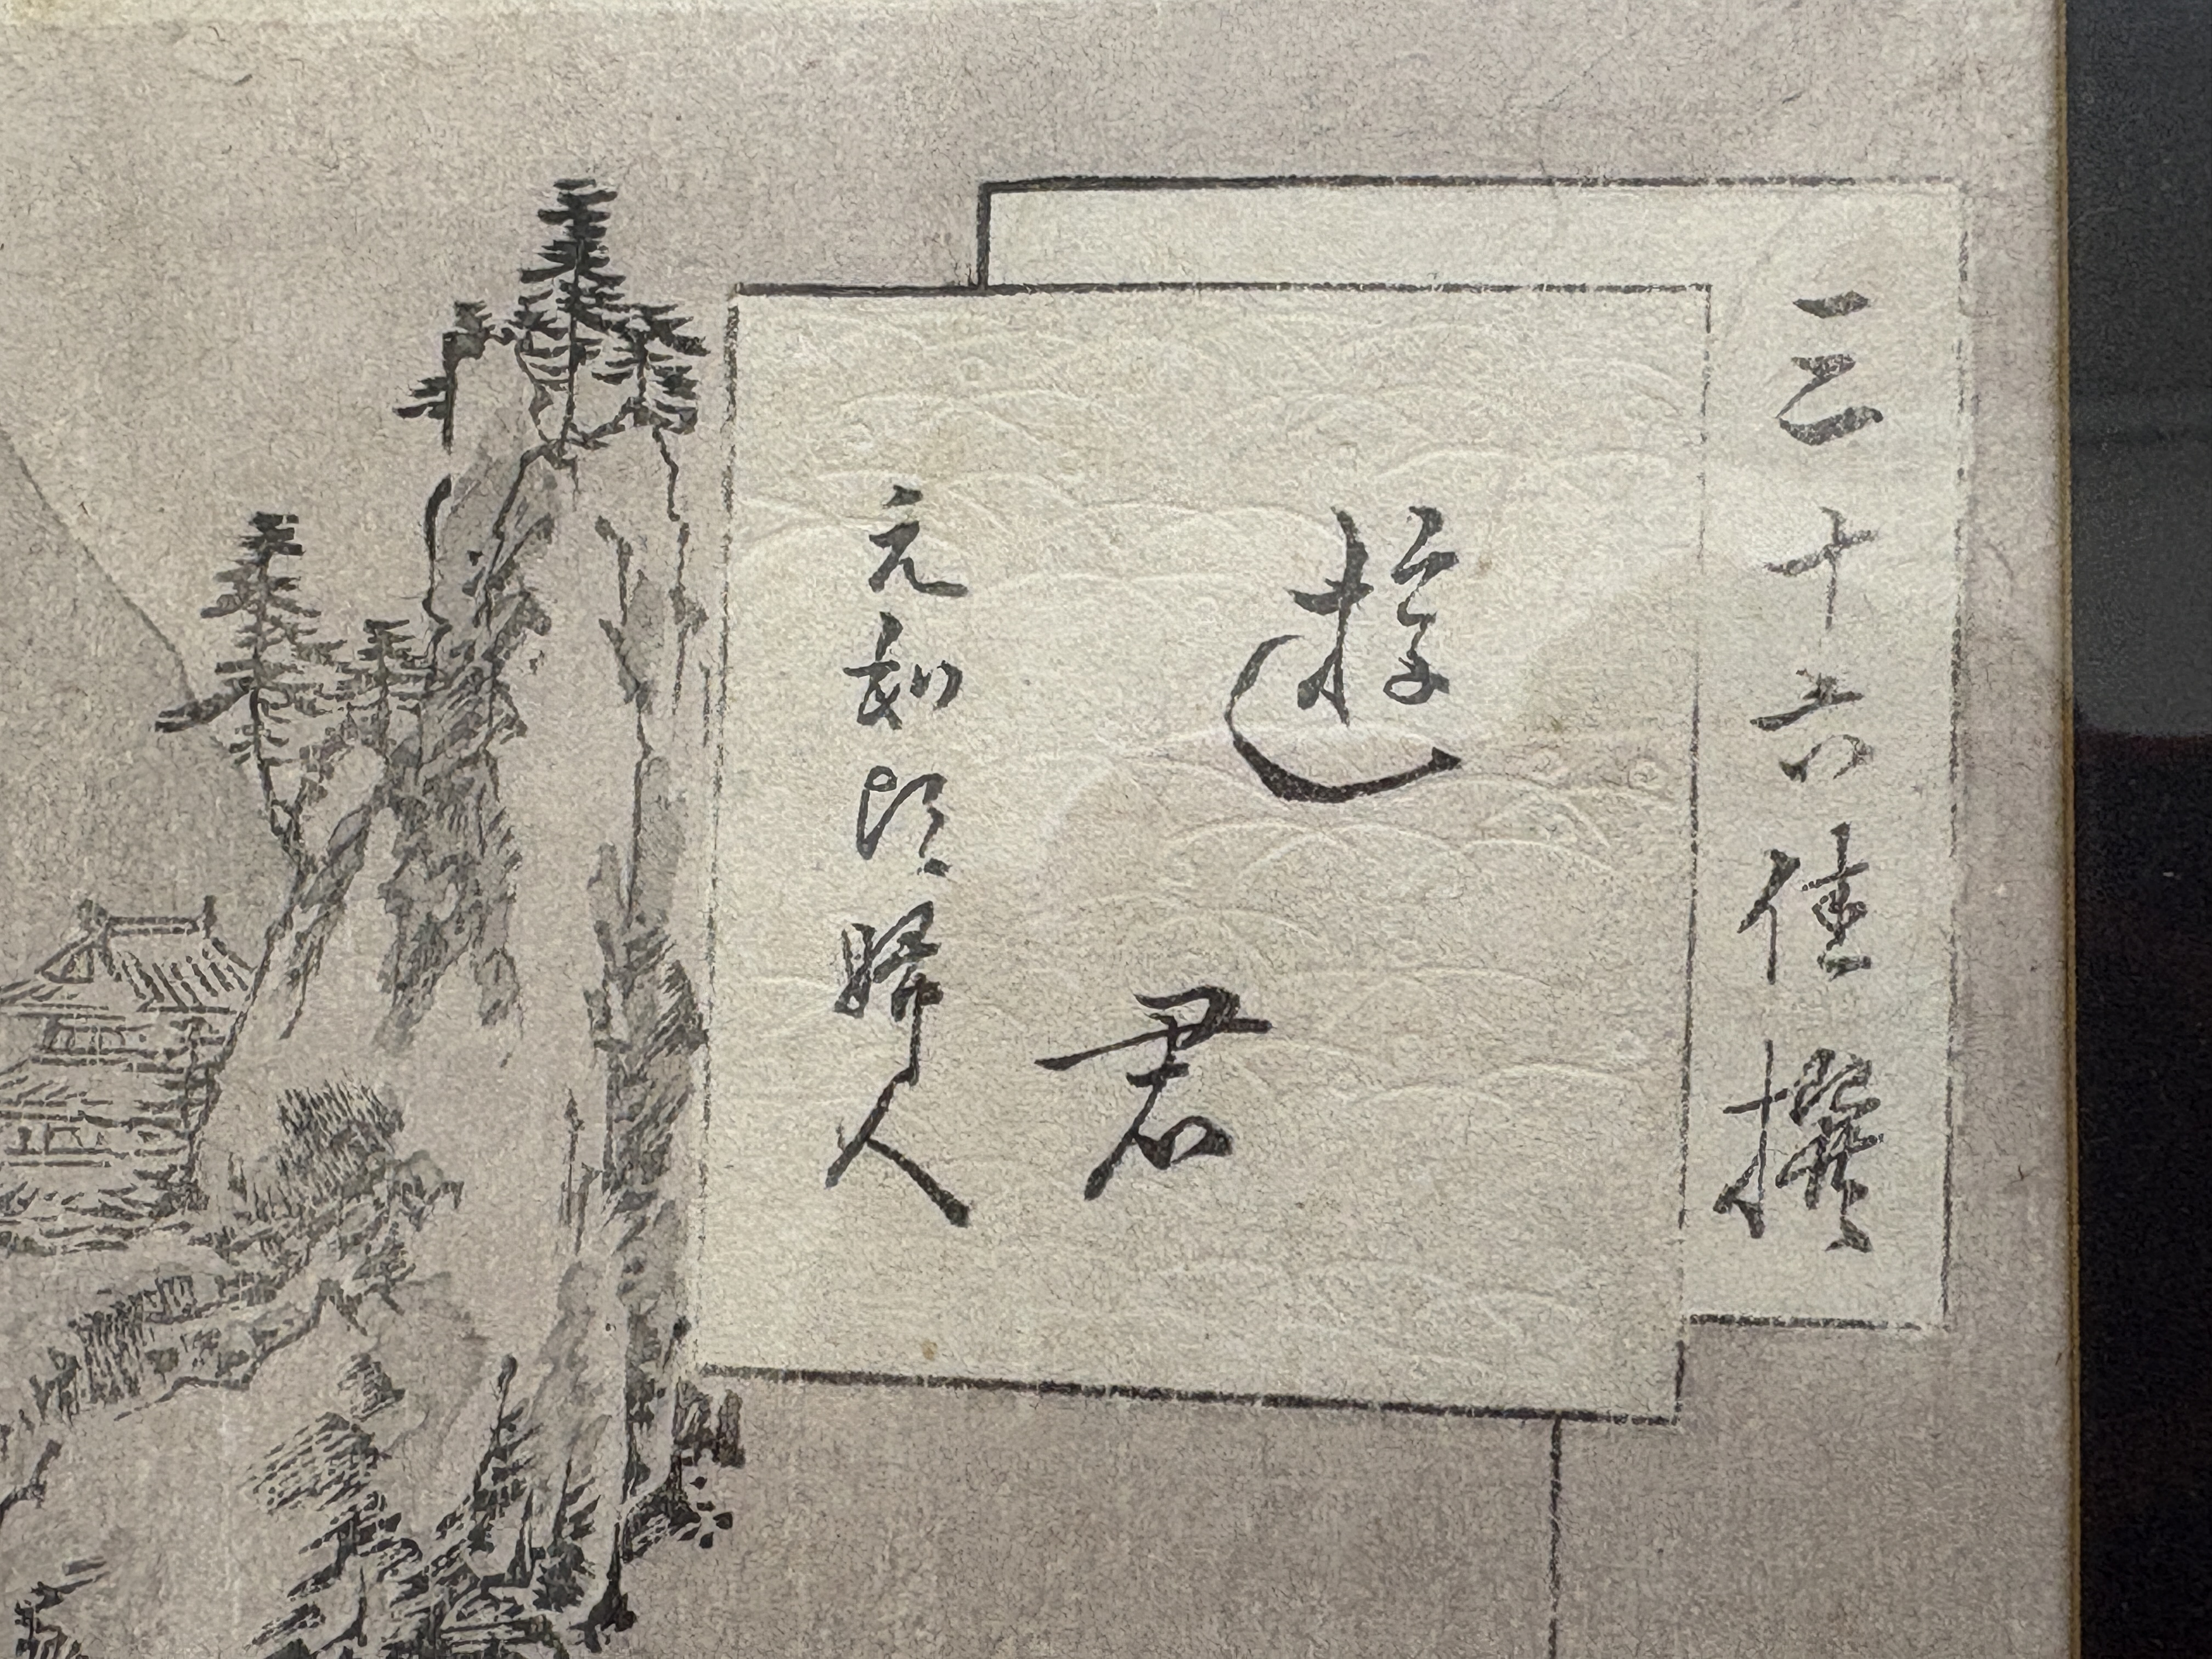 三十六佳撰
遊君
元和頃婦人